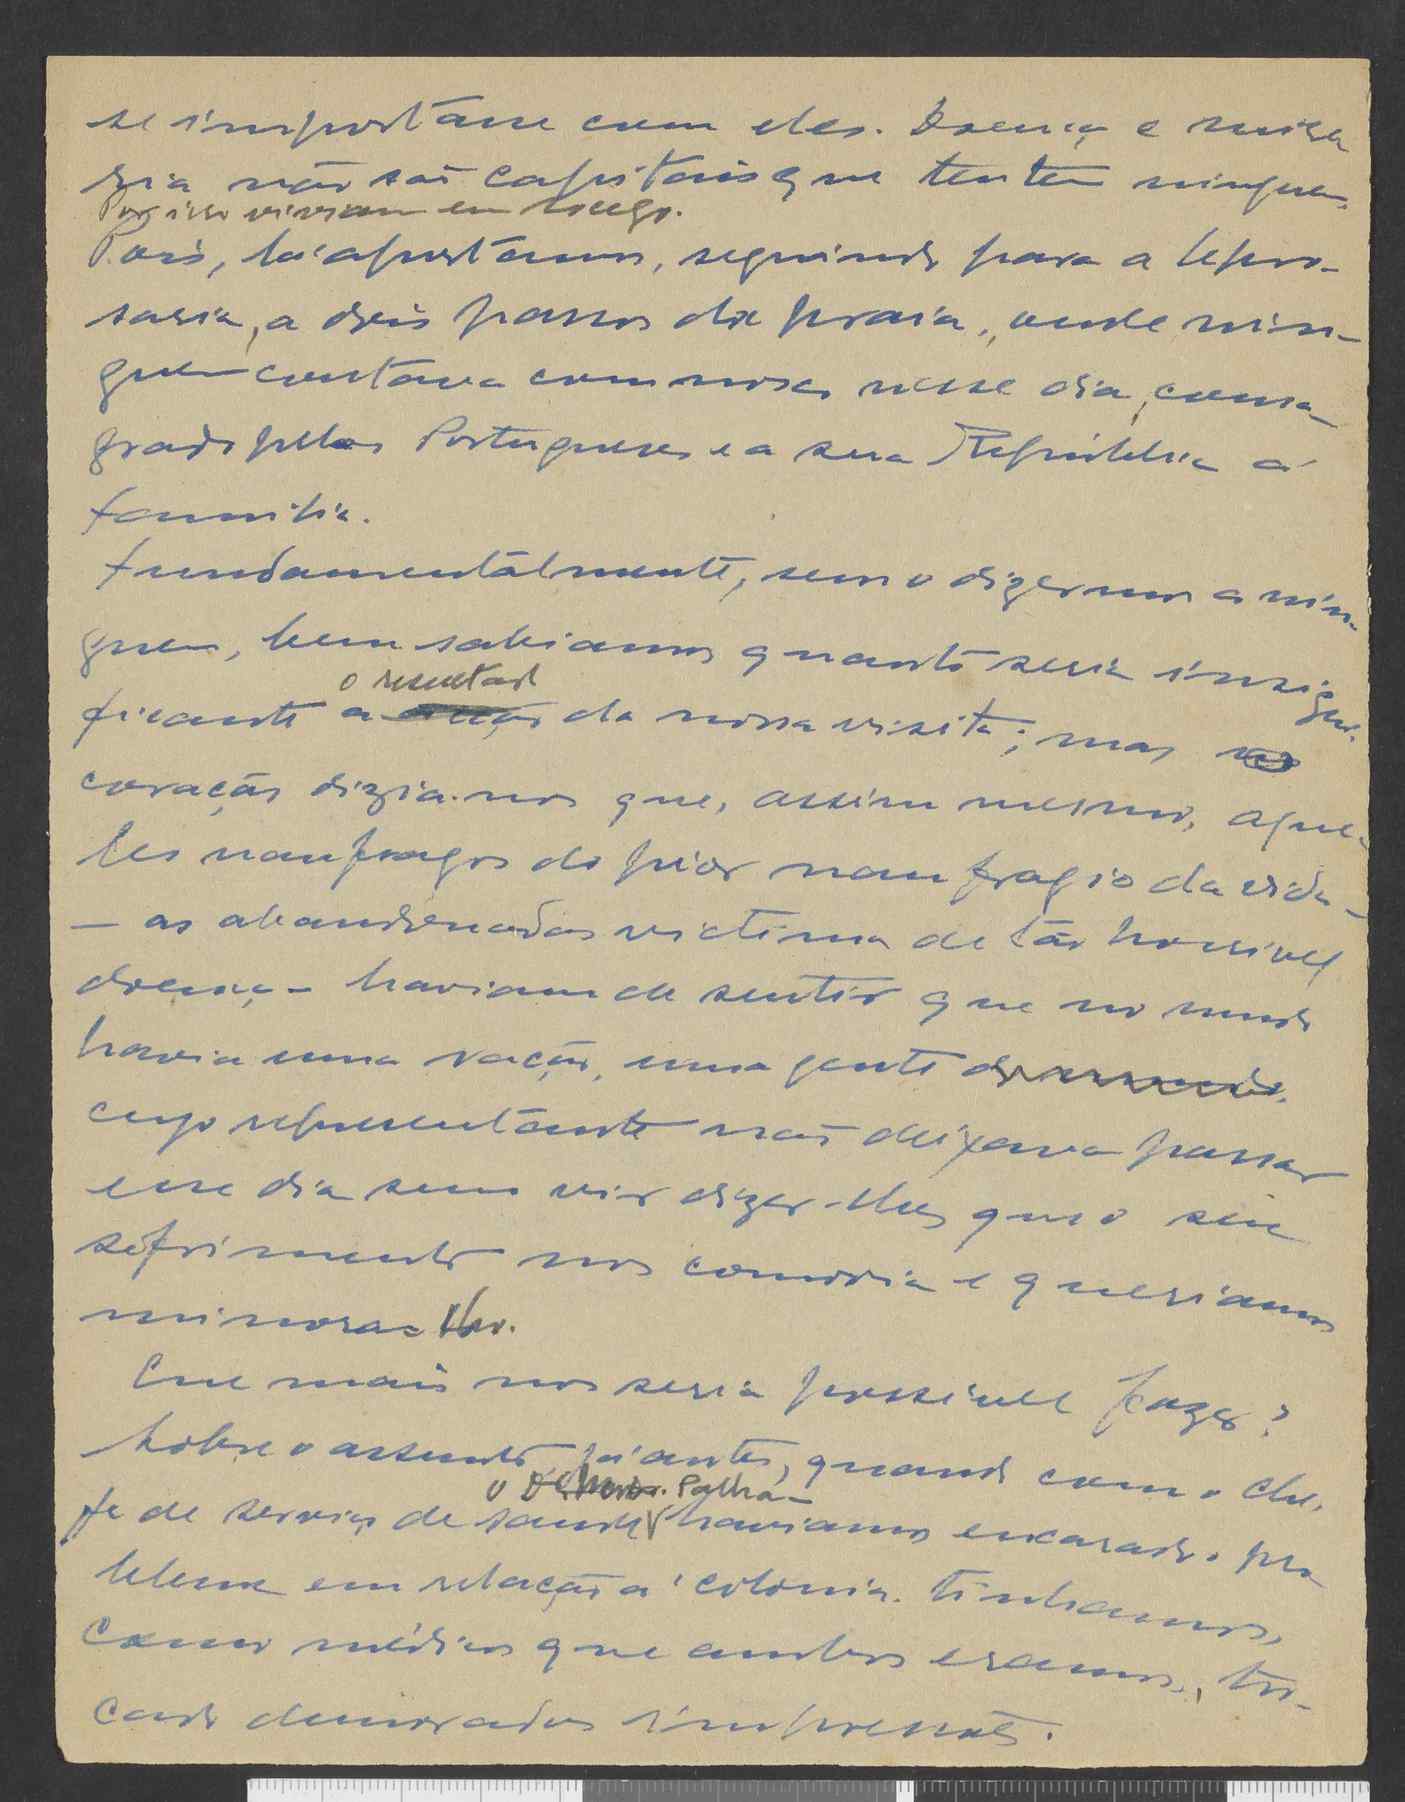 se importasse com eles. Doença e misé
ria não são capitais que tentem ninguem.
Por isso viviam em socego.
Pois, lá aportámos, seguindo para a lepro-
saria, a dois passos da praia, onde nin-
guem contava comnosco nesse dia, consa-
grado pelos Portugueses e a sua República á
familia.
Fundamentálmente, sem o dizermos a nin-
guem, bem sabiamos quanto seria insigni-
o resultado
ficante a acção da nossa visita; mas o
coração dizia-nos que, assim mesmo, aque-
les naufragos do pior naufragio da vida
— as abandonadas victimas de tão horrivel
doença — haviam de sentir que no mundo
havia uma nação, uma gente
cujo representante não deixava passar
esse dia sem vir dizer-lhes que o seu
sofrimento nos comovia e queriamos
minorar-lho.
Que mais nos seria possivel fazer?
Sobre o assunto, já antes, quando com o che-
o Dr. Palha
fe de serviço de saude haviamos encarado o pro
blema em relação á colonia. Tinhamos,
como médicos que ambos eramos, tro-
cado demoradas impressões.